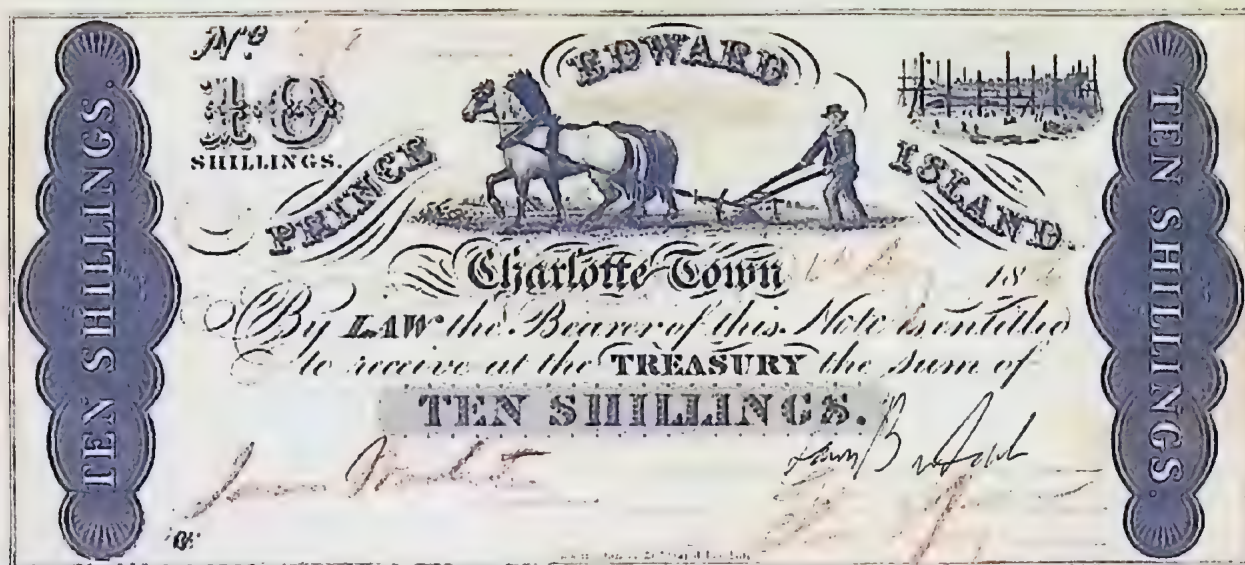 TEN SHILLINGS.
No.
10
SHILLINGS.
PRINCE EDWARD ISLAND.
Charlotte Town 18
By LAW the Bearer of this Note is entitled
to receive at the TREASURY the sum of
TEN SHILLINGS.
TEN SHILLINGS.